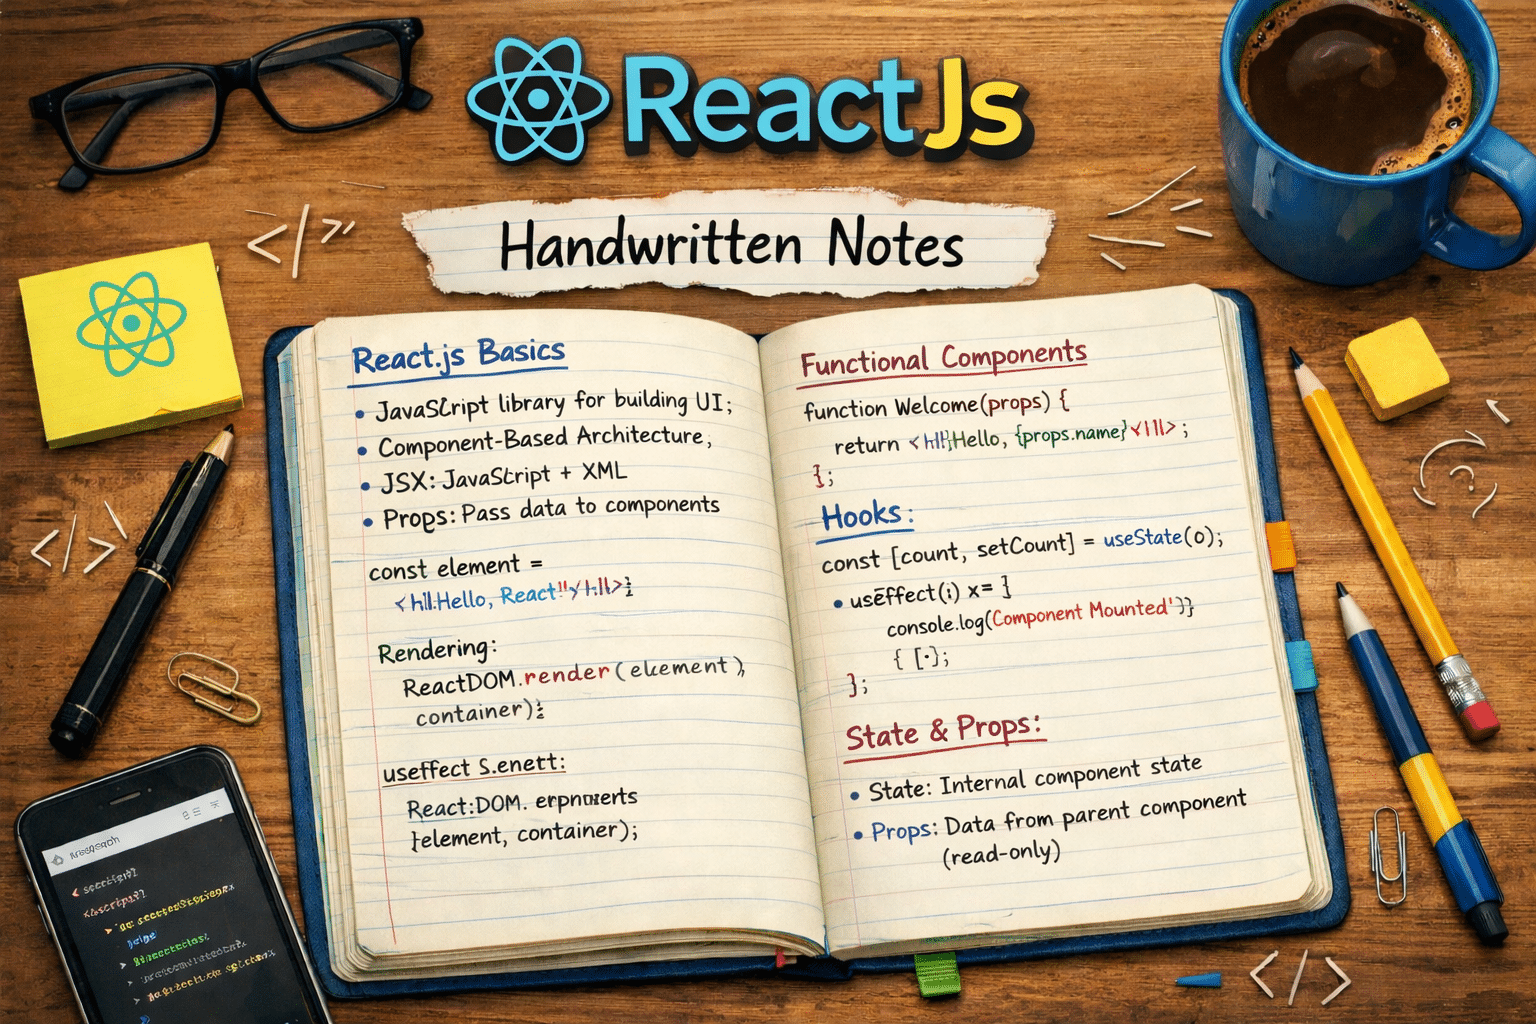 ReactJs
Handwritten Notes
React.js Basics
• JavaScript library for building UI;
• Component-Based Architecture,
• JSX: JavaScript + XML
• Props: Pass data to components
const element =
Hello, React
Rendering:
ReactDOM.render(
container)
useffect S.enett:
React:DOM.
element, container);
Functional Components
function Welcome(props) {
return Hello, {props.name}
};
Hooks:
const [count, setCount] = useState(0);
• useffect(i) x= ]
console.log(Component Mounted')}
{ [·};
};
State & Props:
• State: Internal component state
• Props: Data from parent component
(read-only)